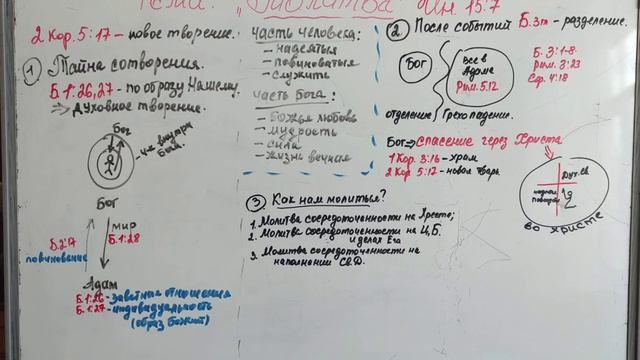 Тема: "Молитва" Ин. 15:7
2 Кор. 5:17 - новое творение.
① Тайна сотворения.
Б. 1:26,27 - по образу Нашему.
=> духовное творение.
Бог
ч-к внутри
Бога.
Бог
мир
Б. 1:28
повиновение
Адам
Б. 1:26 - заветные отношения
Б. 1:27 - индивидуальность
(образ Божий)
часть человека:
- надеяться
- повиноваться
- служить
часть Бога:
- Божья любовь
- мудрость
- сила
- жизнь вечная
② После событий Б. 3гл - разделение.
Бог
Все в
Адаме
Рим. 5:12
Б. 3:1-8
Рим. 3:23
Еф. 4:18
отделение
Грехопадение.
Бог => спасение через Христа
1 Кор. 3:16 - храм
2 Кор. 5:17 - новая тварь
Дух. св
во Христе
③ Как нам молиться?
1. Молитва сосредоточенности на Христе;
2. Молитва сосредоточенности на Ц.Б.
и делах Его
3. Молитва сосредоточенности на
наполнении Св.Д.